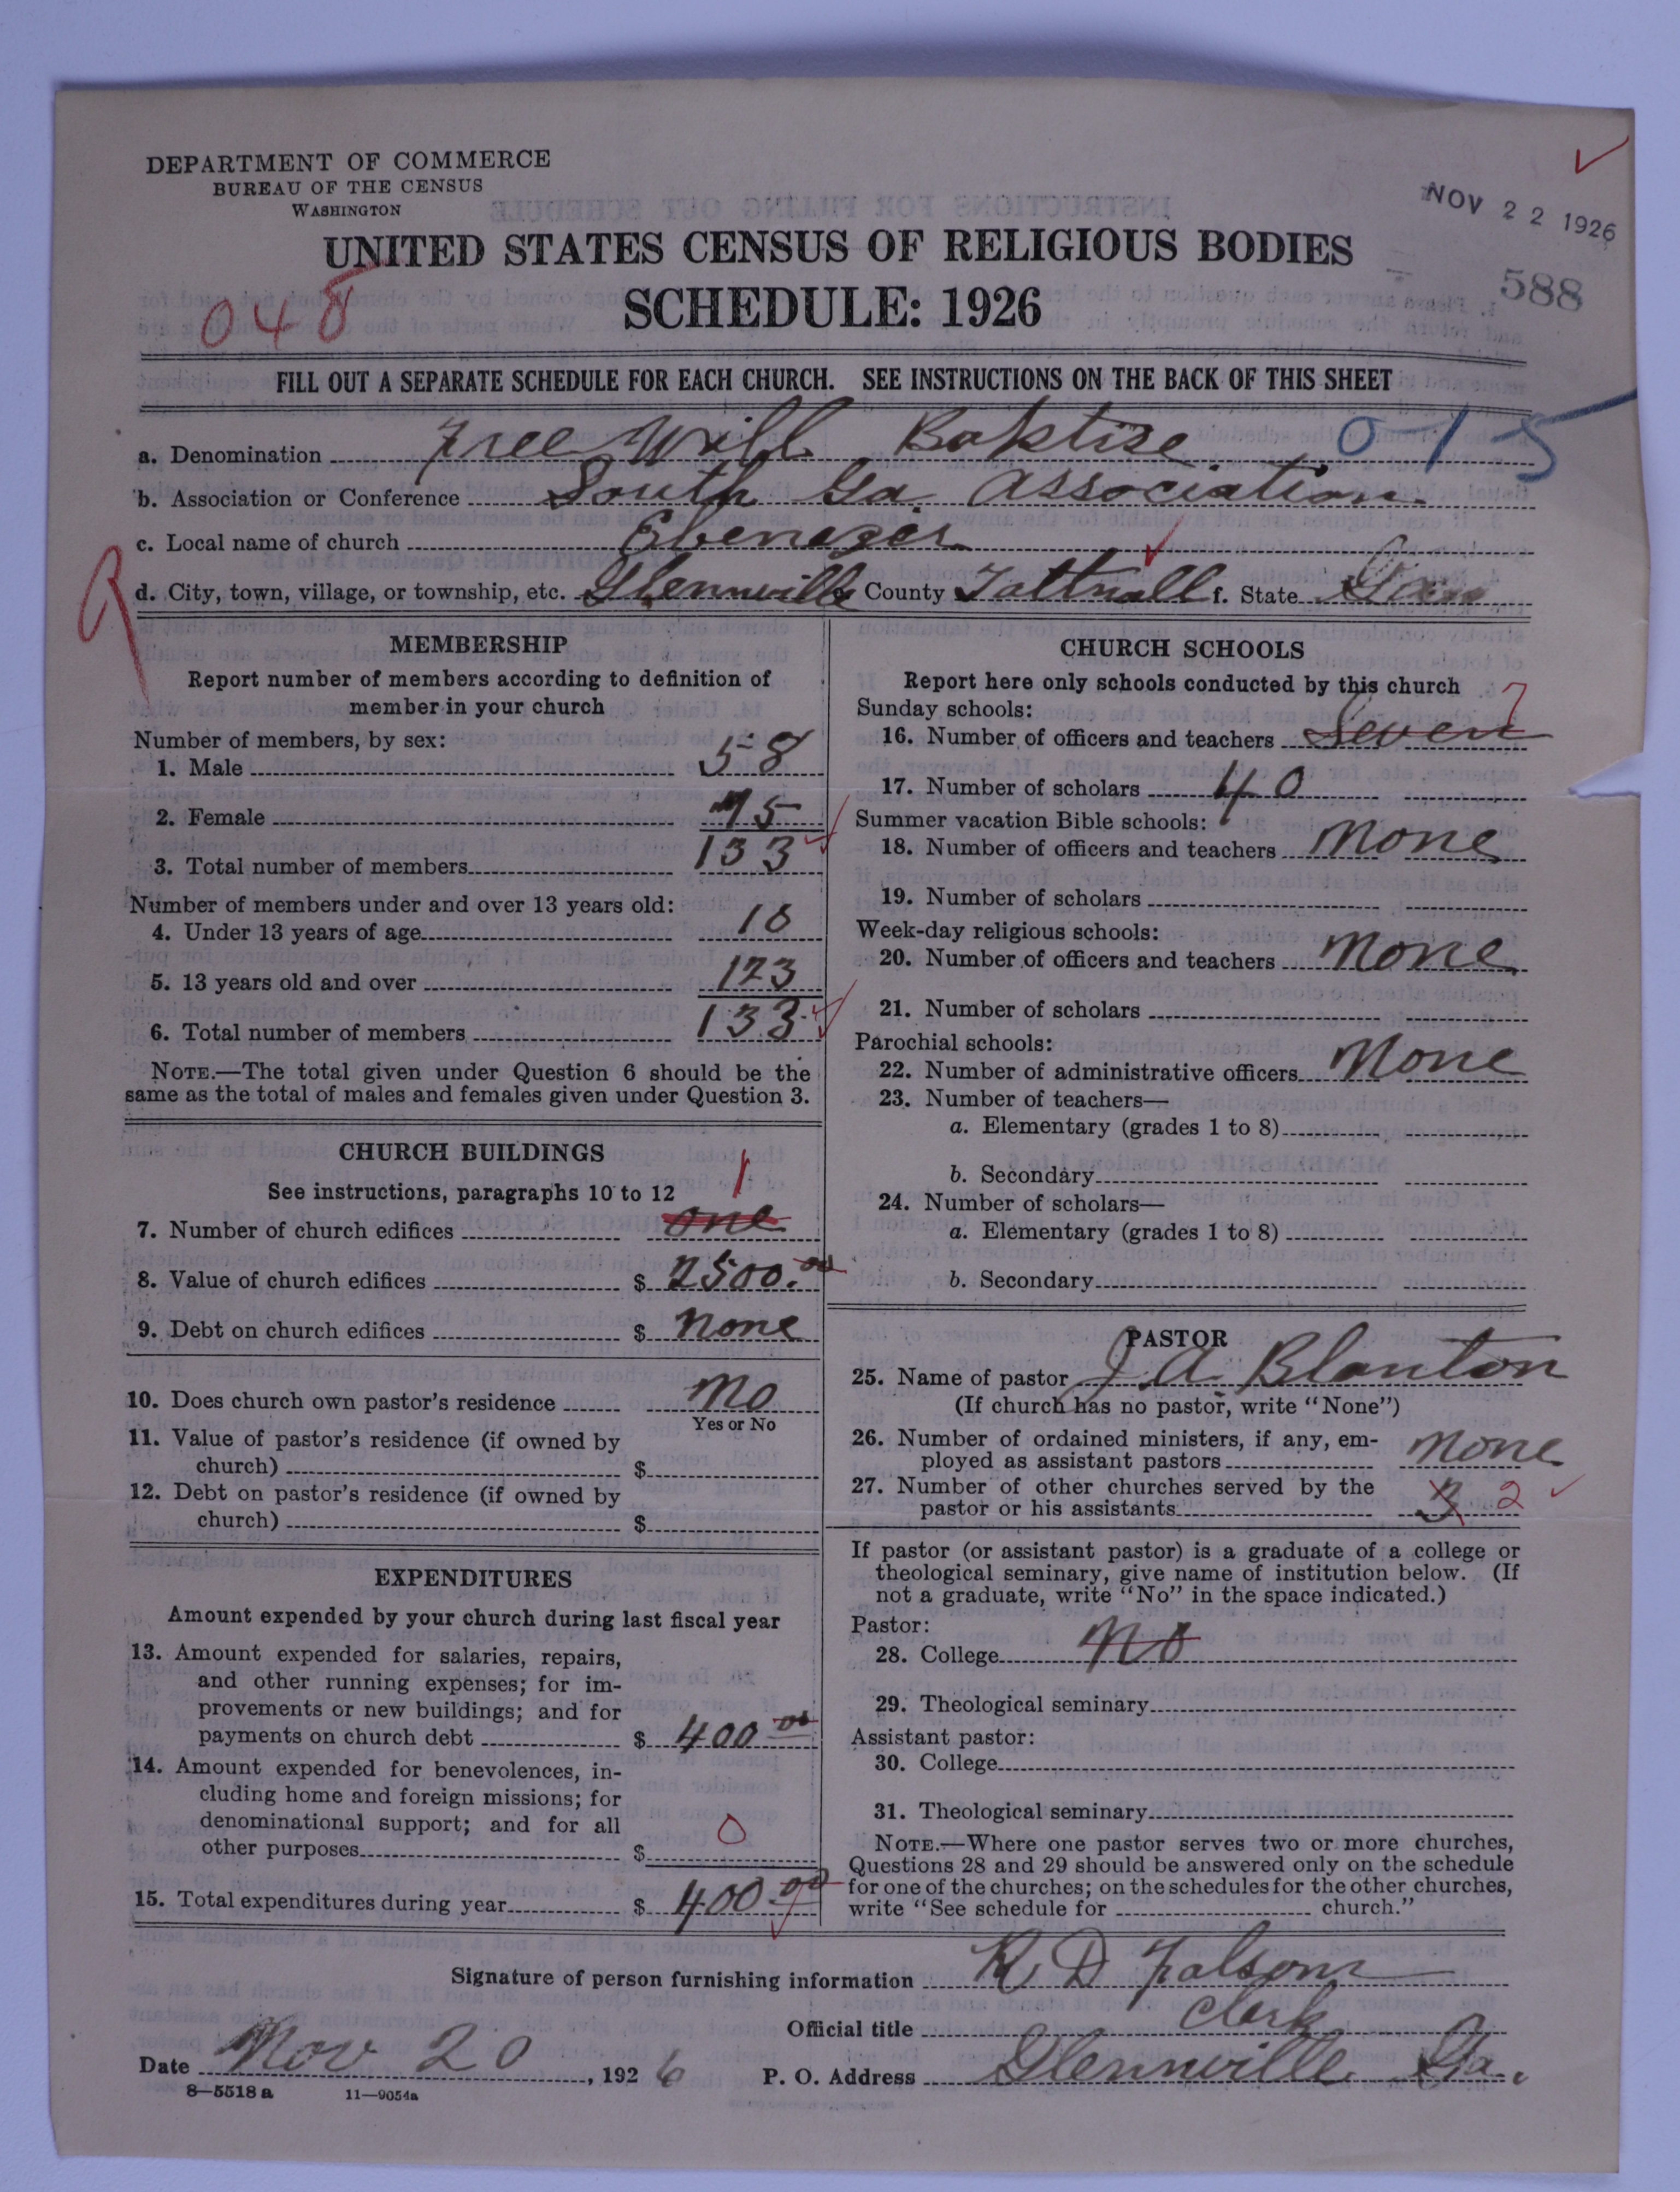 DEPARTMENT OF COMMERCE
BUREAU OF THE CENSUS
WASHINGTON
NOV 22 1926
588
UNITED STATES CENSUS OF RELIGIOUS BODIES
SCHEDULE: 1926
048
FILL OUT A SEPARATE SCHEDULE FOR EACH CHURCH. SEE INSTRUCTIONS ON THE BACK OF THIS SHEET
a. Denomination Free Will Baktise 0-15
b. Association or Conference South Ga Association
c. Local name of church Ebenezer
d. City, town, village, or township, etc. Glennville County Tattnall f. State
MEMBERSHIP
Report number of members according to definition of
member in your church
Number of members, by sex:
1. Male 58
2. Female 75
3. Total number of members 133
Number of members under and over 13 years old:
4. Under 13 years of age 10
5. 13 years old and over 123
6. Total number of members 133
NOTE.—The total given under Question 6 should be the
same as the total of males and females given under Question 3.
CHURCH BUILDINGS
See instructions, paragraphs 10 to 12 1
7. Number of church edifices one
8. Value of church edifices $ 2500.00
9. Debt on church edifices $ none
10. Does church own pastor's residence no
Yes or No
11. Value of pastor's residence (if owned by
church) $
12. Debt on pastor's residence (if owned by
church) $
EXPENDITURES
Amount expended by your church during last fiscal year
13. Amount expended for salaries, repairs,
and other running expenses; for im-
provements or new buildings; and for
payments on church debt $ 400 00
14. Amount expended for benevolences, in-
cluding home and foreign missions; for
denominational support; and for all
other purposes $ 0
15. Total expenditures during year $ 400.00
CHURCH SCHOOLS
Report here only schools conducted by this church
Sunday schools: 7
16. Number of officers and teachers Seven
17. Number of scholars 40
Summer vacation Bible schools:
18. Number of officers and teachers None
19. Number of scholars
Week-day religious schools:
20. Number of officers and teachers None
21. Number of scholars
Parochial schools:
22. Number of administrative officers None
23. Number of teachers—
a. Elementary (grades 1 to 8)
b. Secondary
24. Number of scholars—
a. Elementary (grades 1 to 8)
b. Secondary
PASTOR
25. Name of pastor J A Blanton
(If church has no pastor, write "None")
26. Number of ordained ministers, if any, em-
ployed as assistant pastors None
27. Number of other churches served by the
pastor or his assistants 3 2
If pastor (or assistant pastor) is a graduate of a college or
theological seminary, give name of institution below. (If
not a graduate, write "No" in the space indicated.)
Pastor:
28. College No
29. Theological seminary
Assistant pastor:
30. College
31. Theological seminary
NOTE.—Where one pastor serves two or more churches,
Questions 28 and 29 should be answered only on the schedule
for one of the churches; on the schedules for the other churches,
write "See schedule for church."
Signature of person furnishing information R. D Folsom
Official title Clerk
Date Nov 20, 1926 P. O. Address Glennville Ga.
8—5518 a 11—9054a